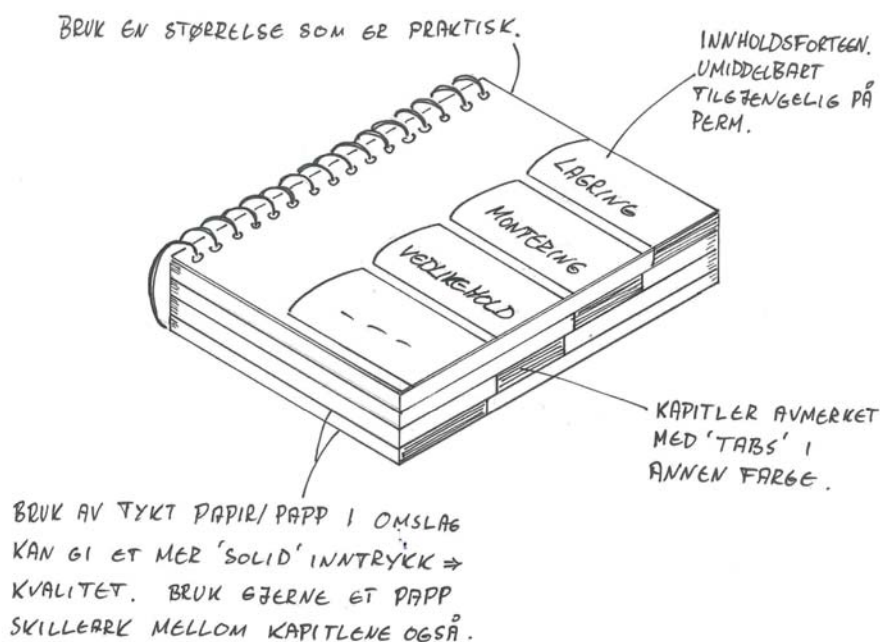 BRUK EN STØRRELSE SOM ER PRAKTISK.
INNHOLDSFORTEGN.
UMIDDELBART
TILGJENGELIG PÅ
PERM.
LAGRING
MONTERING
VEDLIKEHOLD
KAPITLER AVMERKET
MED 'TABS' I
ANNEN FARGE.
BRUK AV TYKT PAPIR/PAPP I OMSLAG
KAN GI ET MER 'SOLID' INNTRYKK ⇒
KVALITET. BRUK GJERNE ET PAPP
SKILLEARK MELLOM KAPITLENE OGSÅ.